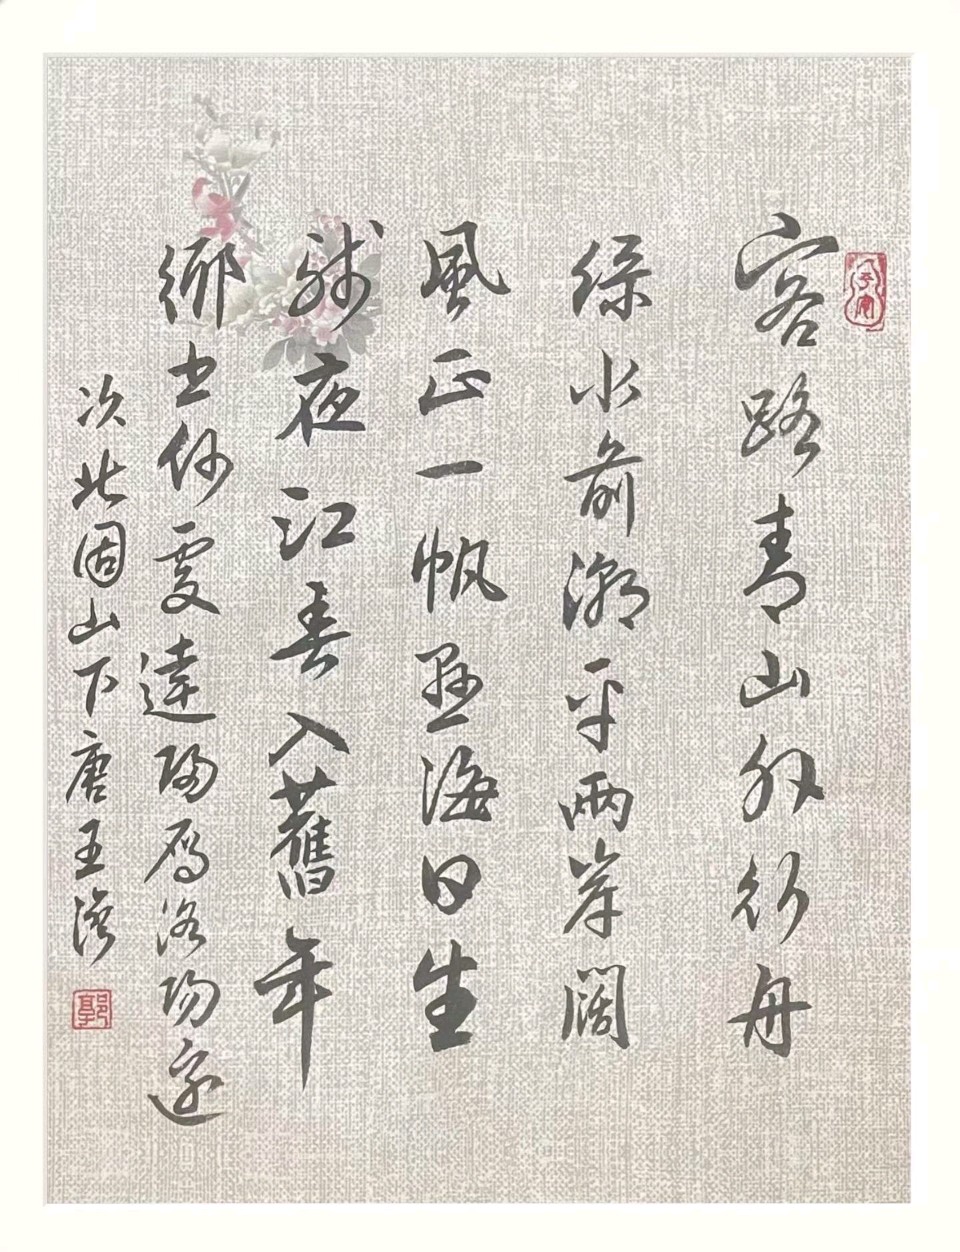 客路青山外行舟
綠水前潮平兩岸闊
風正一帆懸海日生
殘夜江春入舊年
鄉書何處達歸雁洛陽邊
次北固山下唐王灣
郭